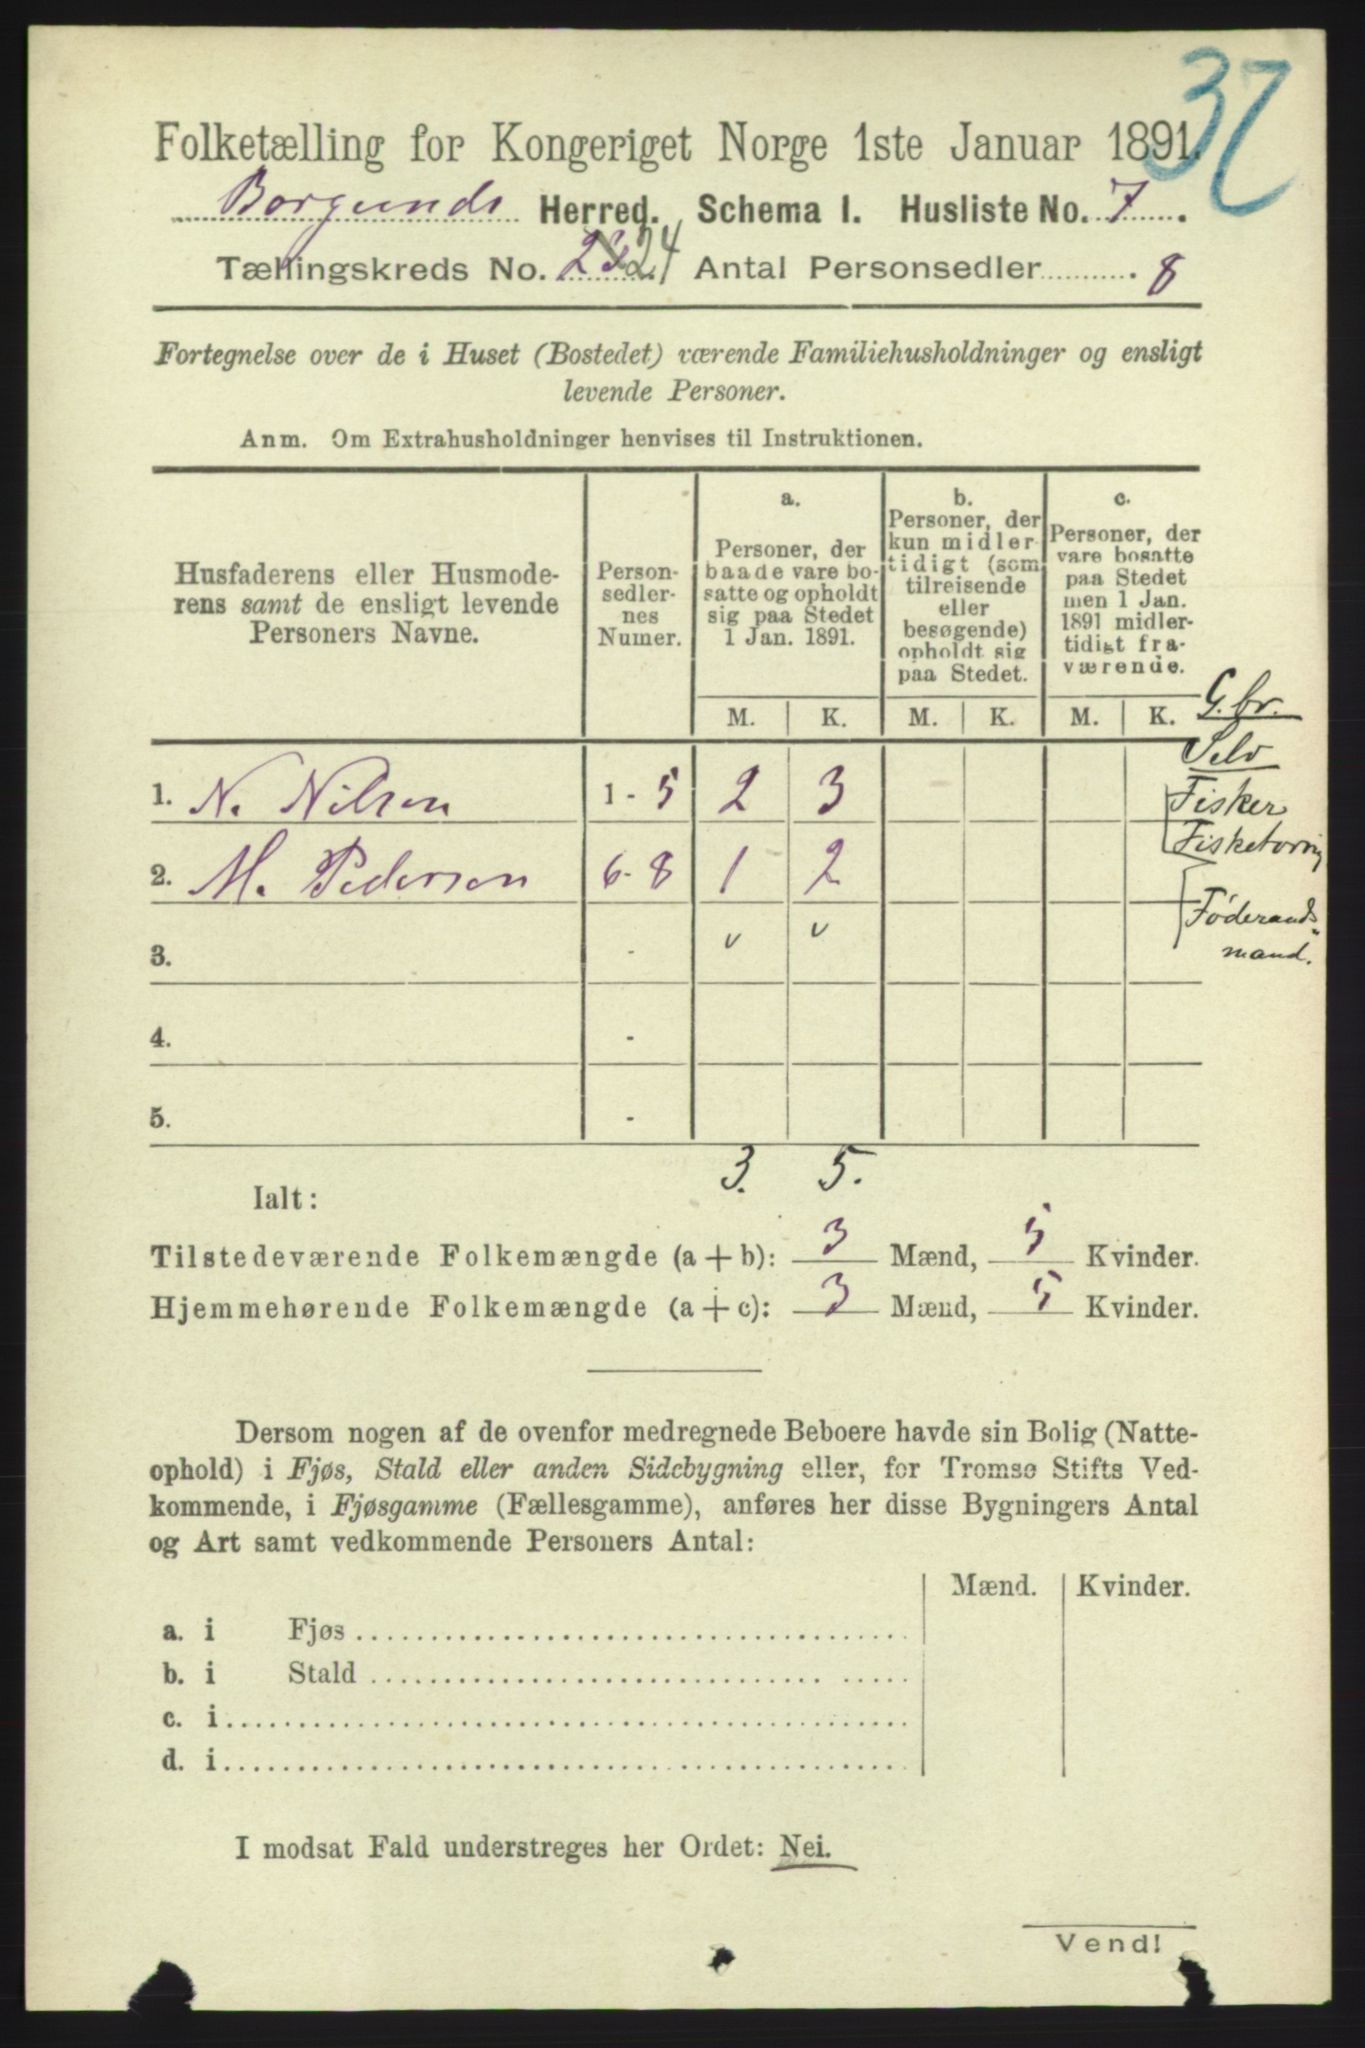 32
Folketælling for Kongeriget Norge 1ste Januar 1891.
Borgunds Herred. Schema I. Husliste No. 7.
Tællingskreds No. 23 24 Antal Personsedler 8
Fortegnelse over de i Huset (Bostedet) værende Familiehusholdninger og ensligt
levende Personer.
Anm. Om Extrahusholdninger henvises til Instruktionen.
Husfaderens eller Husmode-
rens samt de ensligt levende
Personers Navne.
Person-
sedler-
nes
Numer.
a.
Personer, der
baade vare bo-
satte og opholdt
sig paa Stedet
1 Jan. 1891.
b.
Personer, der
kun midler-
tidigt (som
tilreisende
eller
besøgende)
opholdt sig
paa Stedet.
c.
Personer, der
vare bosatte
paa Stedet
men 1 Jan.
1891 midler-
tidigt fra-
værende.
M. K. M. K. M. K. G.br.
Selv
1. N. Nilsen 1 - 5 2 3 Fisker
Fisketorvig
2. M. Pedersen 6 - 8 1 2
Föderaads-
mand.
3. - v v
4. -
5. -
3. 5.
Ialt:
Tilstedeværende Folkemængde (a + b): 3 Mænd, 5 Kvinder.
Hjemmehørende Folkemængde (a + c): 3 Mænd, 5 Kvinder.
Dersom nogen af de ovenfor medregnede Beboere havde sin Bolig (Natte-
ophold) i Fjøs, Stald eller anden Sidebygning eller, for Tromsø Stifts Ved-
kommende, i Fjøsgamme (Fællesgamme), anføres her disse Bygningers Antal
og Art samt vedkommende Personers Antal:
Mænd. Kvinder.
a. i Fjøs
b. i Stald
c. i
d. i
I modsat Fald understreges her Ordet: Nei.
Vend!